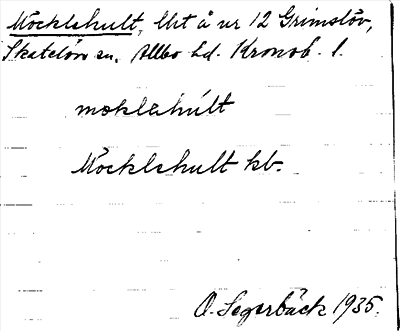 Mocklehult, lht å nr 12 Grimslöv,
Skatelöv sn, Allbo hd. Kronob. l.
moklahúlt
Mocklehult kb.
O. Segerbäck 1935.